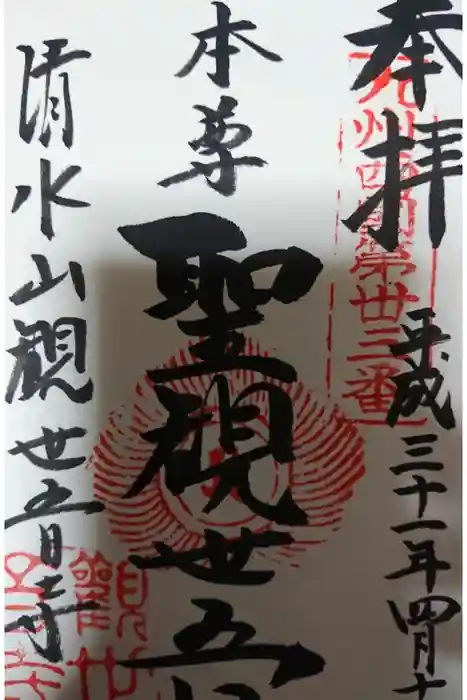 奉拝
平成三十一年四月十
九州西国第丗三番
本尊
聖観世音
清水山観世音寺